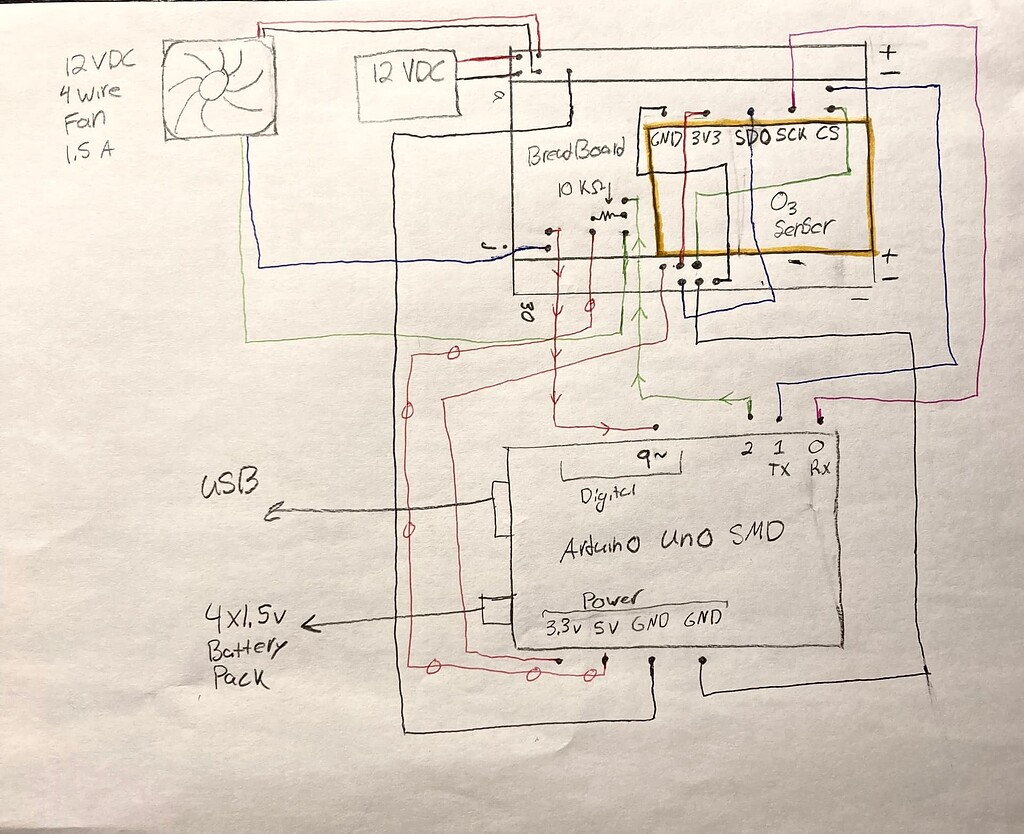 12 VDC
4 Wire
Fan
1.5 A
12 VDC
+
−
a
BreadBoard
10 KΩ
GND 3V3 SDO SCK CS
O3
Sensor
j
+
−
−
30
9~ 2 1 0
TX Rx
Digital
Arduino Uno SMD
USB
Power
3.3v 5V GND GND
4x1.5v
Battery
Pack